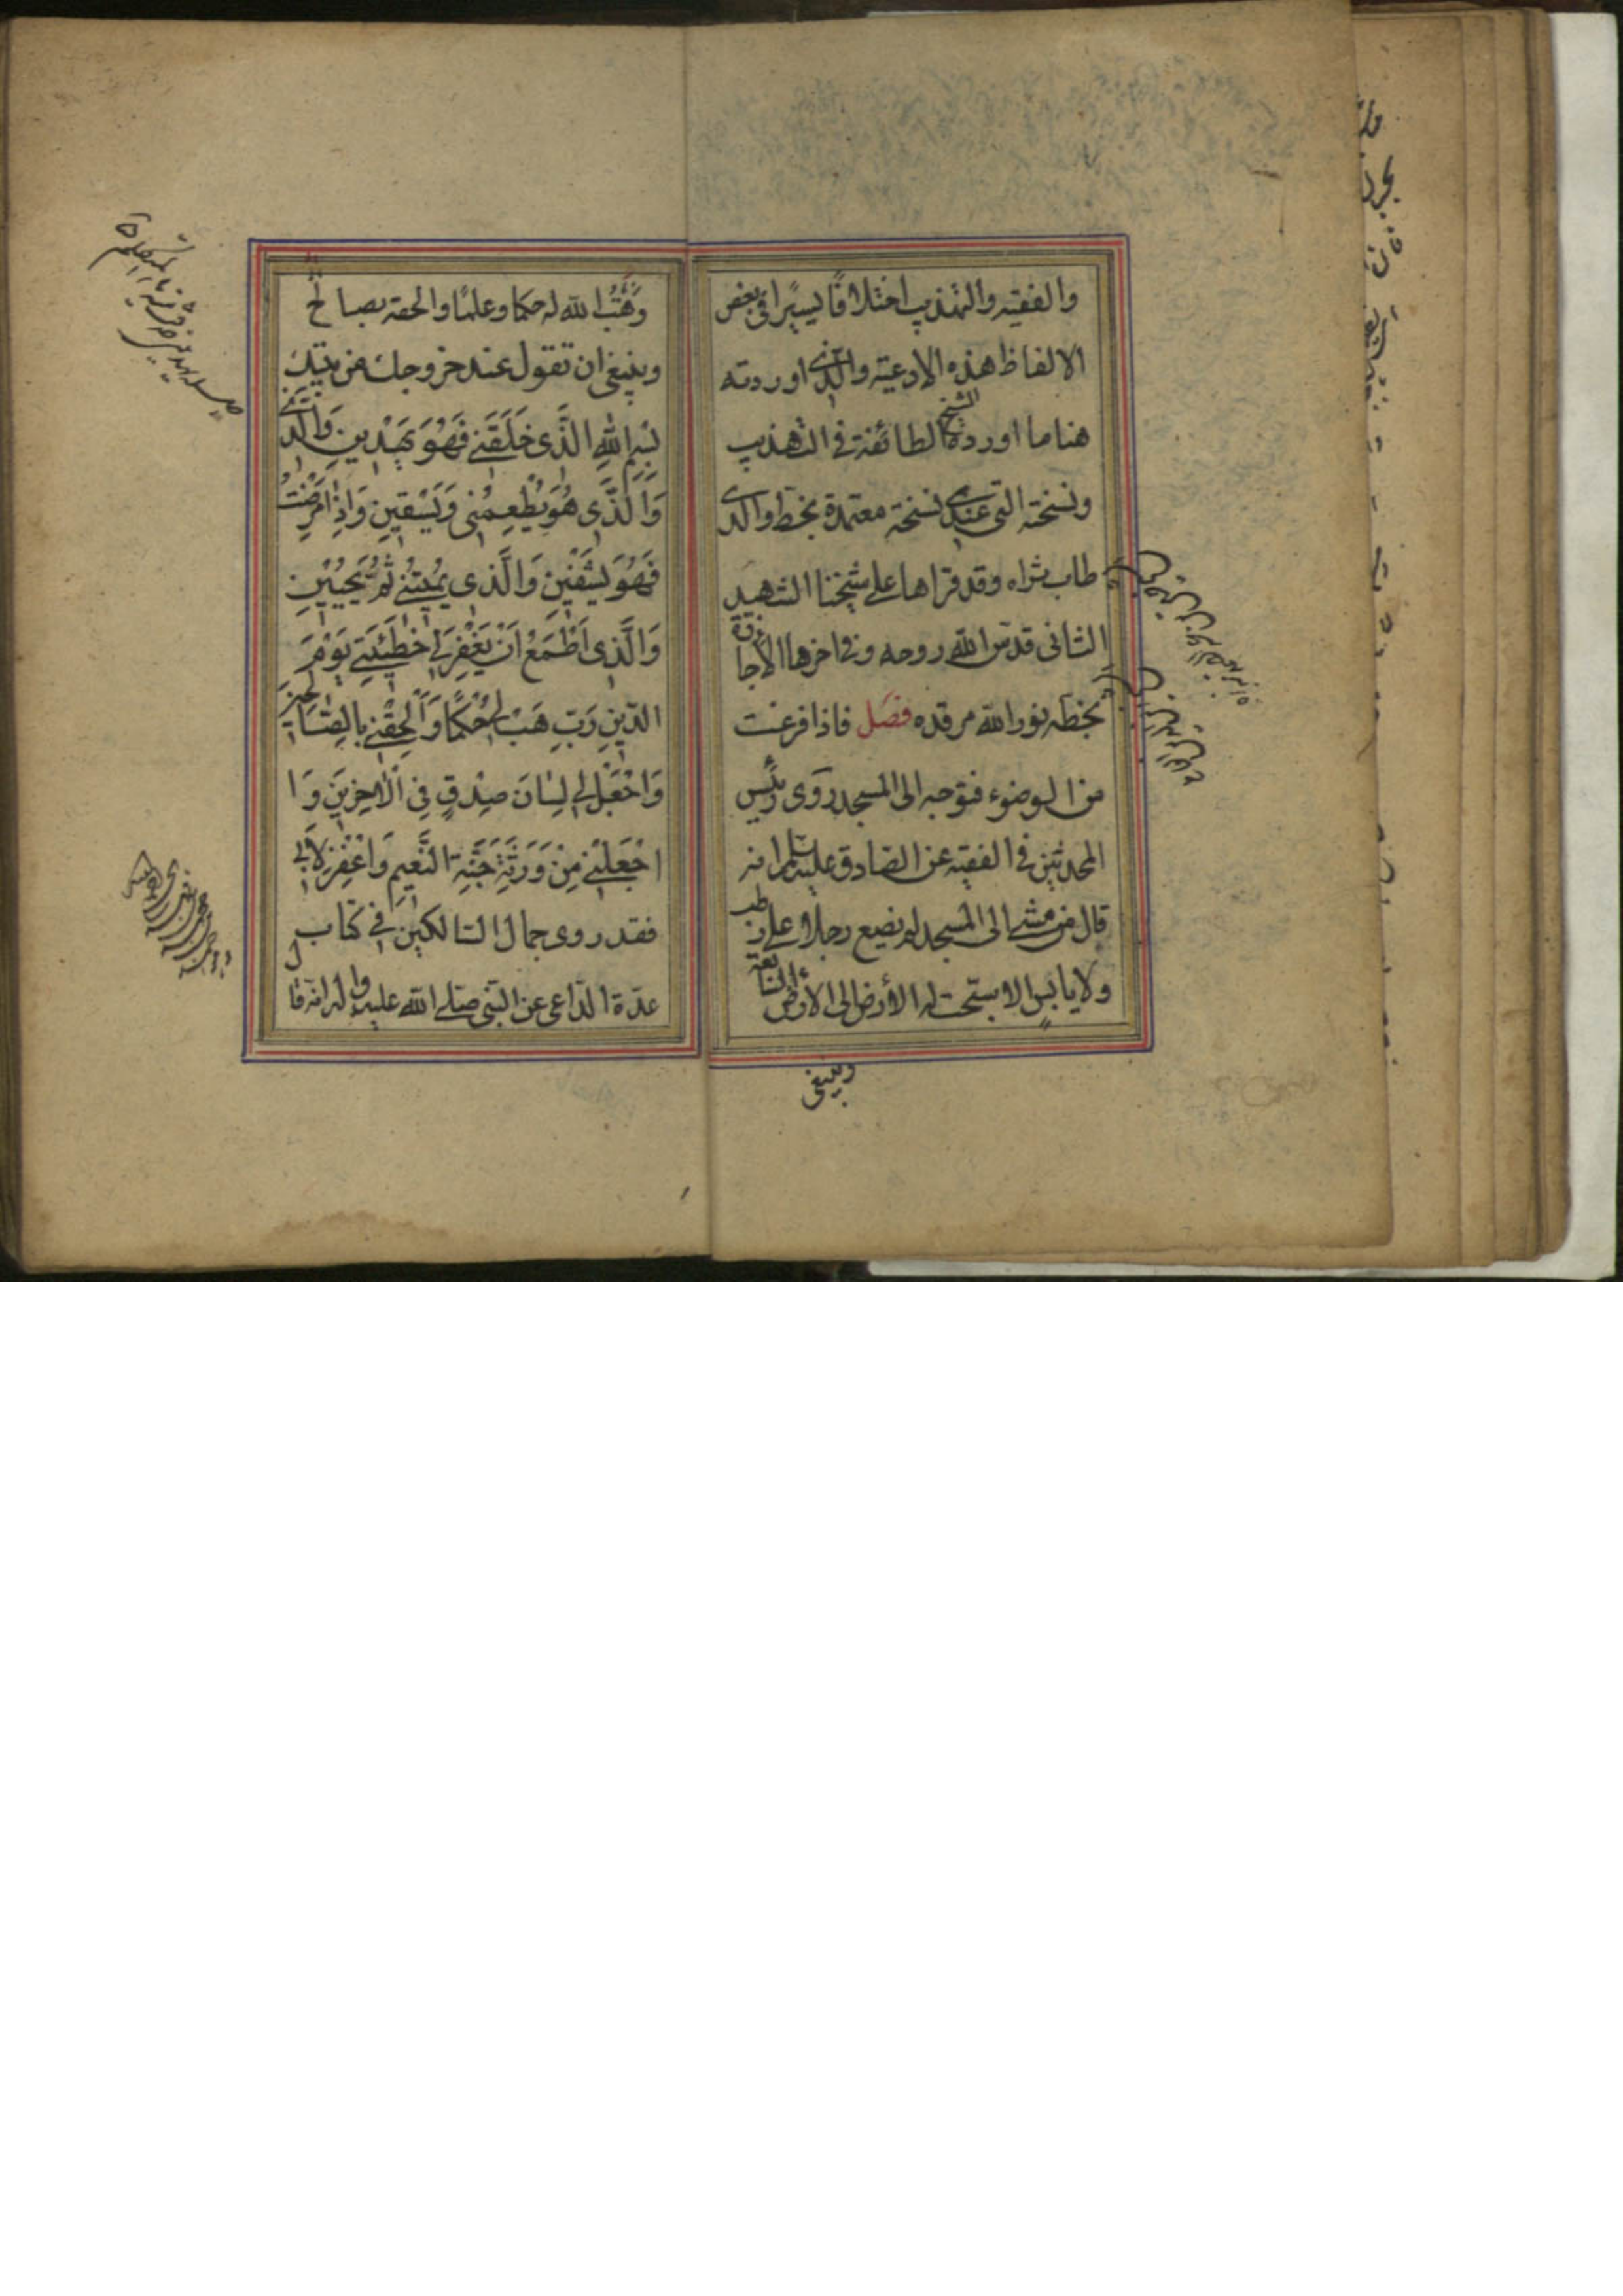 والفقيه والتهذيب اختلافًا يسيرًا في بعض
الالفاظ هذه الادعية والذي اوردته
هنا ما اورده الشيخ الطائفة في التهذيب
ونسخته التي عندي نسخة معتمدة بخط والدي
طاب ثراه وقد قراها على شيخنا الشهيد
الثاني قدس الله روحه وفي اخرها الاجازة
بخطه نور الله مرقده فصل فاذا فرغت
من الوضوء فتوجه الى المسجد روى رئيس
المحدثين في الفقيه عن الصادق عليه السلام انه
قال من مشى الى المسجد لم يضع رجلا على رطب
ولا يابس الا سبحت له الأرض الى الأرض السابعة
وينبغي
وَهَبَ الله له حكما وعلمًا والحقه بصالح
وينبغي ان تقول عند خروجك من بيتك
بِسْمِ اللهِ الَّذي خَلَقَنِي فَهُوَ يَهْدِينِ وَالَّذي
وَالَّذي هُوَ يُطْعِمُنِي وَيَسْقِينِ وَاِذٰا مَرِضْتُ
فَهُوَ يَشْفِينِ وَالَّذي يُمِيتُنِي ثُمَّ يُحْيِينِ
وَالَّذي اَطْمَعُ اَنْ يَغْفِرَ لِي خَطِيئَتِي يَوْمَ
الدّينِ رَبِّ هَبْ لِي حُكْمًا وَاَلْحِقْنِي بِالصّٰالِحِينَ
وَاجْعَلْ لِي لِسٰانَ صِدْقٍ فِي الْاٰخِرِينَ وَا
اجْعَلْنِي مِنْ وَرَثَةِ جَنَّةِ النَّعِيمِ وَاغْفِرْ لِاَبِي
فقد روى جمال السالكين في كتاب
عدّة الداعي عن النبي صلى الله عليه واله انه قال